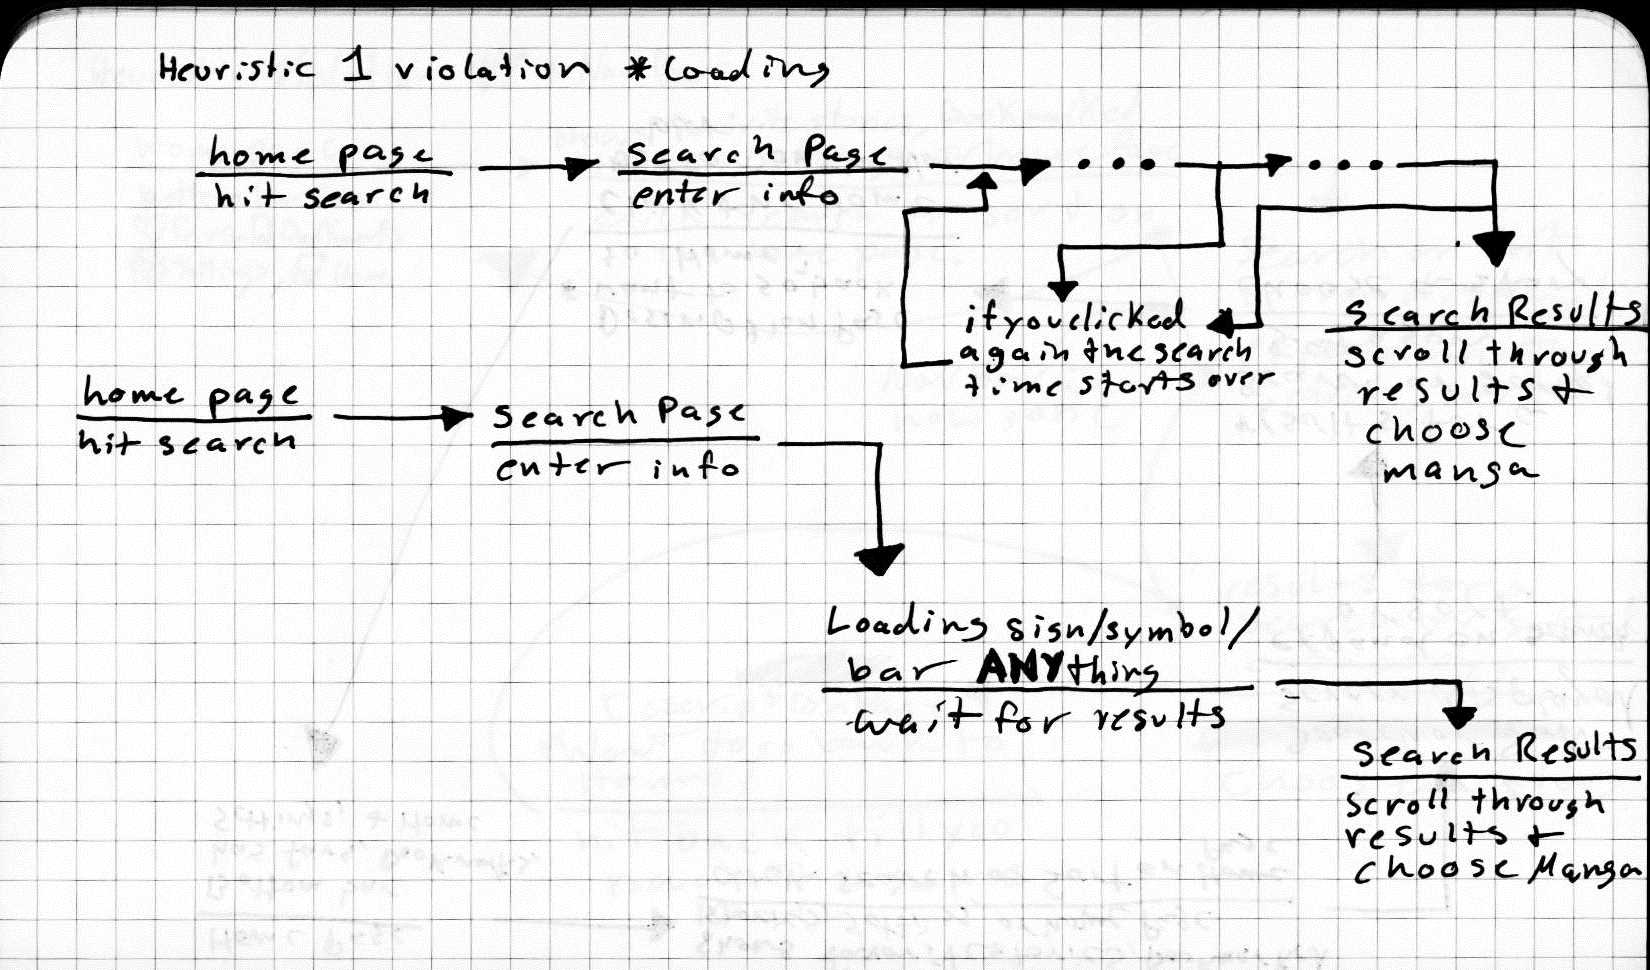 Heuristic 1 violation * Loading
home page
hit search
Search Page
enter info
if you clicked
again the search
time starts over
Search Results
scroll through
results +
choose
manga
home page
hit search
Search Page
enter info
Loading sign/symbol/
bar ANYthing
wait for results
Search Results
scroll through
results +
choose Manga